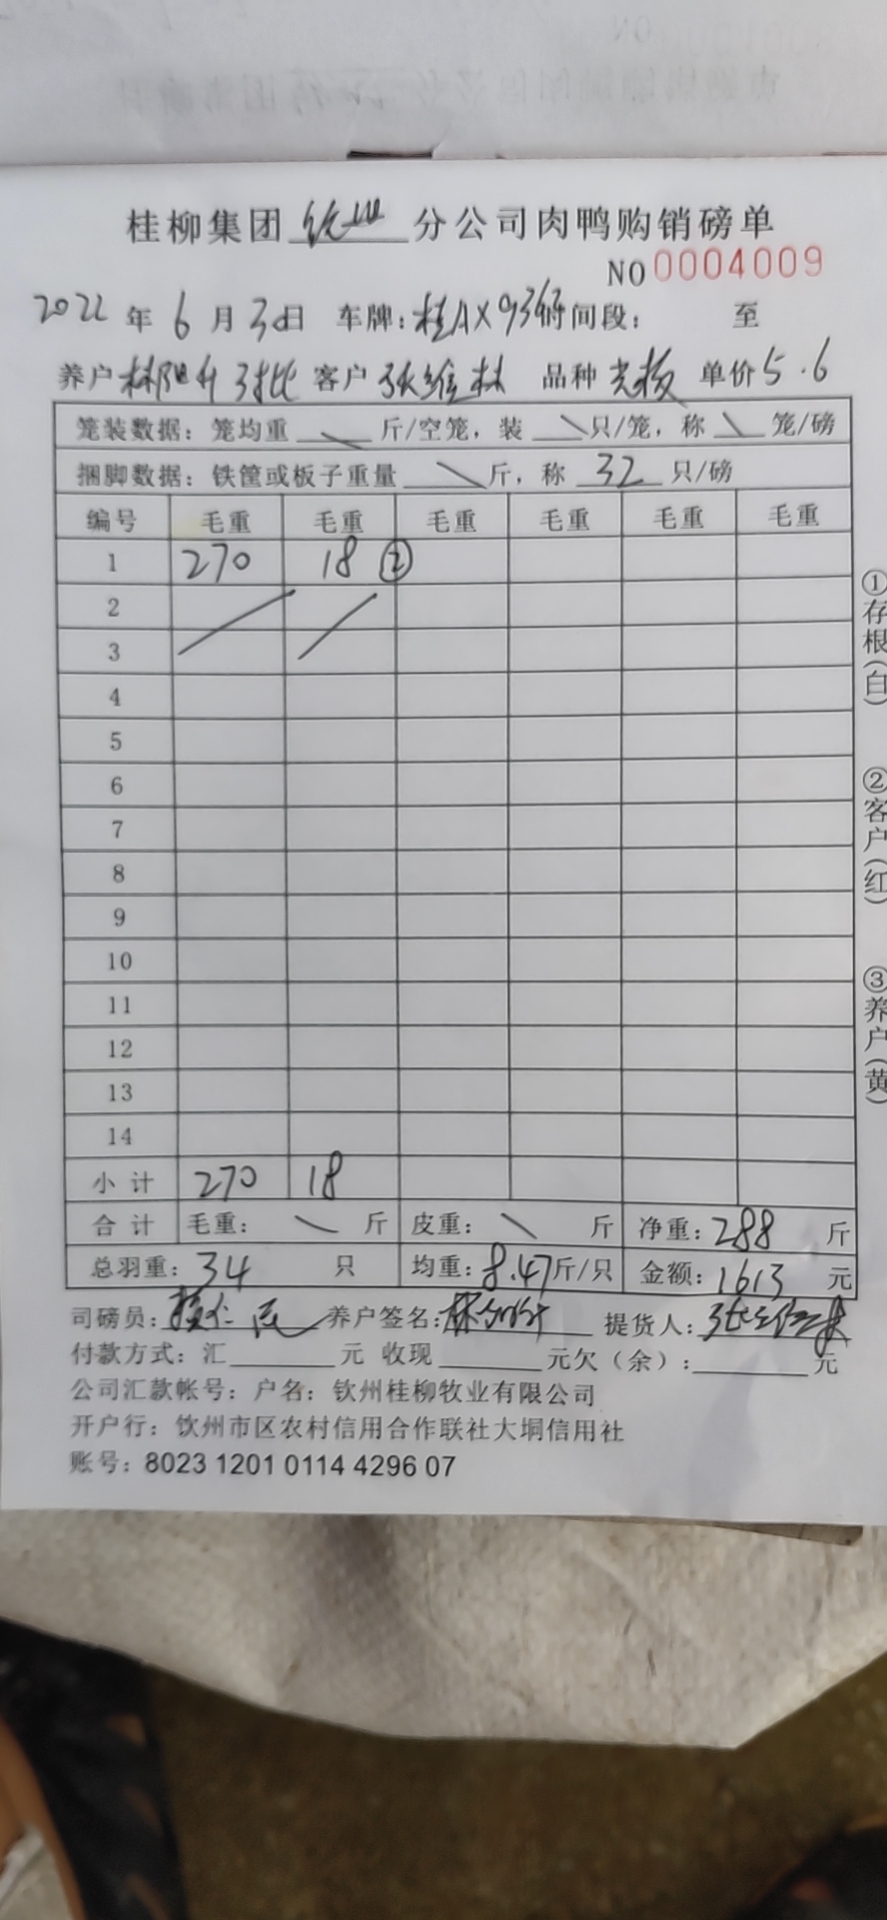 桂柳集团 钦州 分公司肉鸭购销磅单
NO 0004009
2022 年 6 月 30 日 车牌: 桂AX936 时间段: 至
养户 林阳升 对比 客户 张维林 品种 单价 5.6
笼装数据: 笼均重 \ 斤/空笼, 装 \ 只/笼, 称 \ 笼/磅
捆脚数据: 铁筐或板子重量 \ 斤, 称 32 只/磅
编号 毛重 毛重 毛重 毛重 毛重 毛重
1 270 18 ②
2
3
4
5
6
7
8
9
10
11
12
13
14
小计 270 18
合计 毛重: \ 斤 皮重: \ 斤 净重: 288 斤
总羽重: 34 只 均重: 8.47 斤/只 金额: 1613 元
司磅员: 养户签名: 提货人:
付款方式: 汇 元 收现 元欠(余): 元
公司汇款帐号: 户名: 钦州桂柳牧业有限公司
开户行: 钦州市区农村信用合作联社大垌信用社
账号: 8023 1201 0114 4296 07
①存根(白)
②客户(红)
③养户(黄)